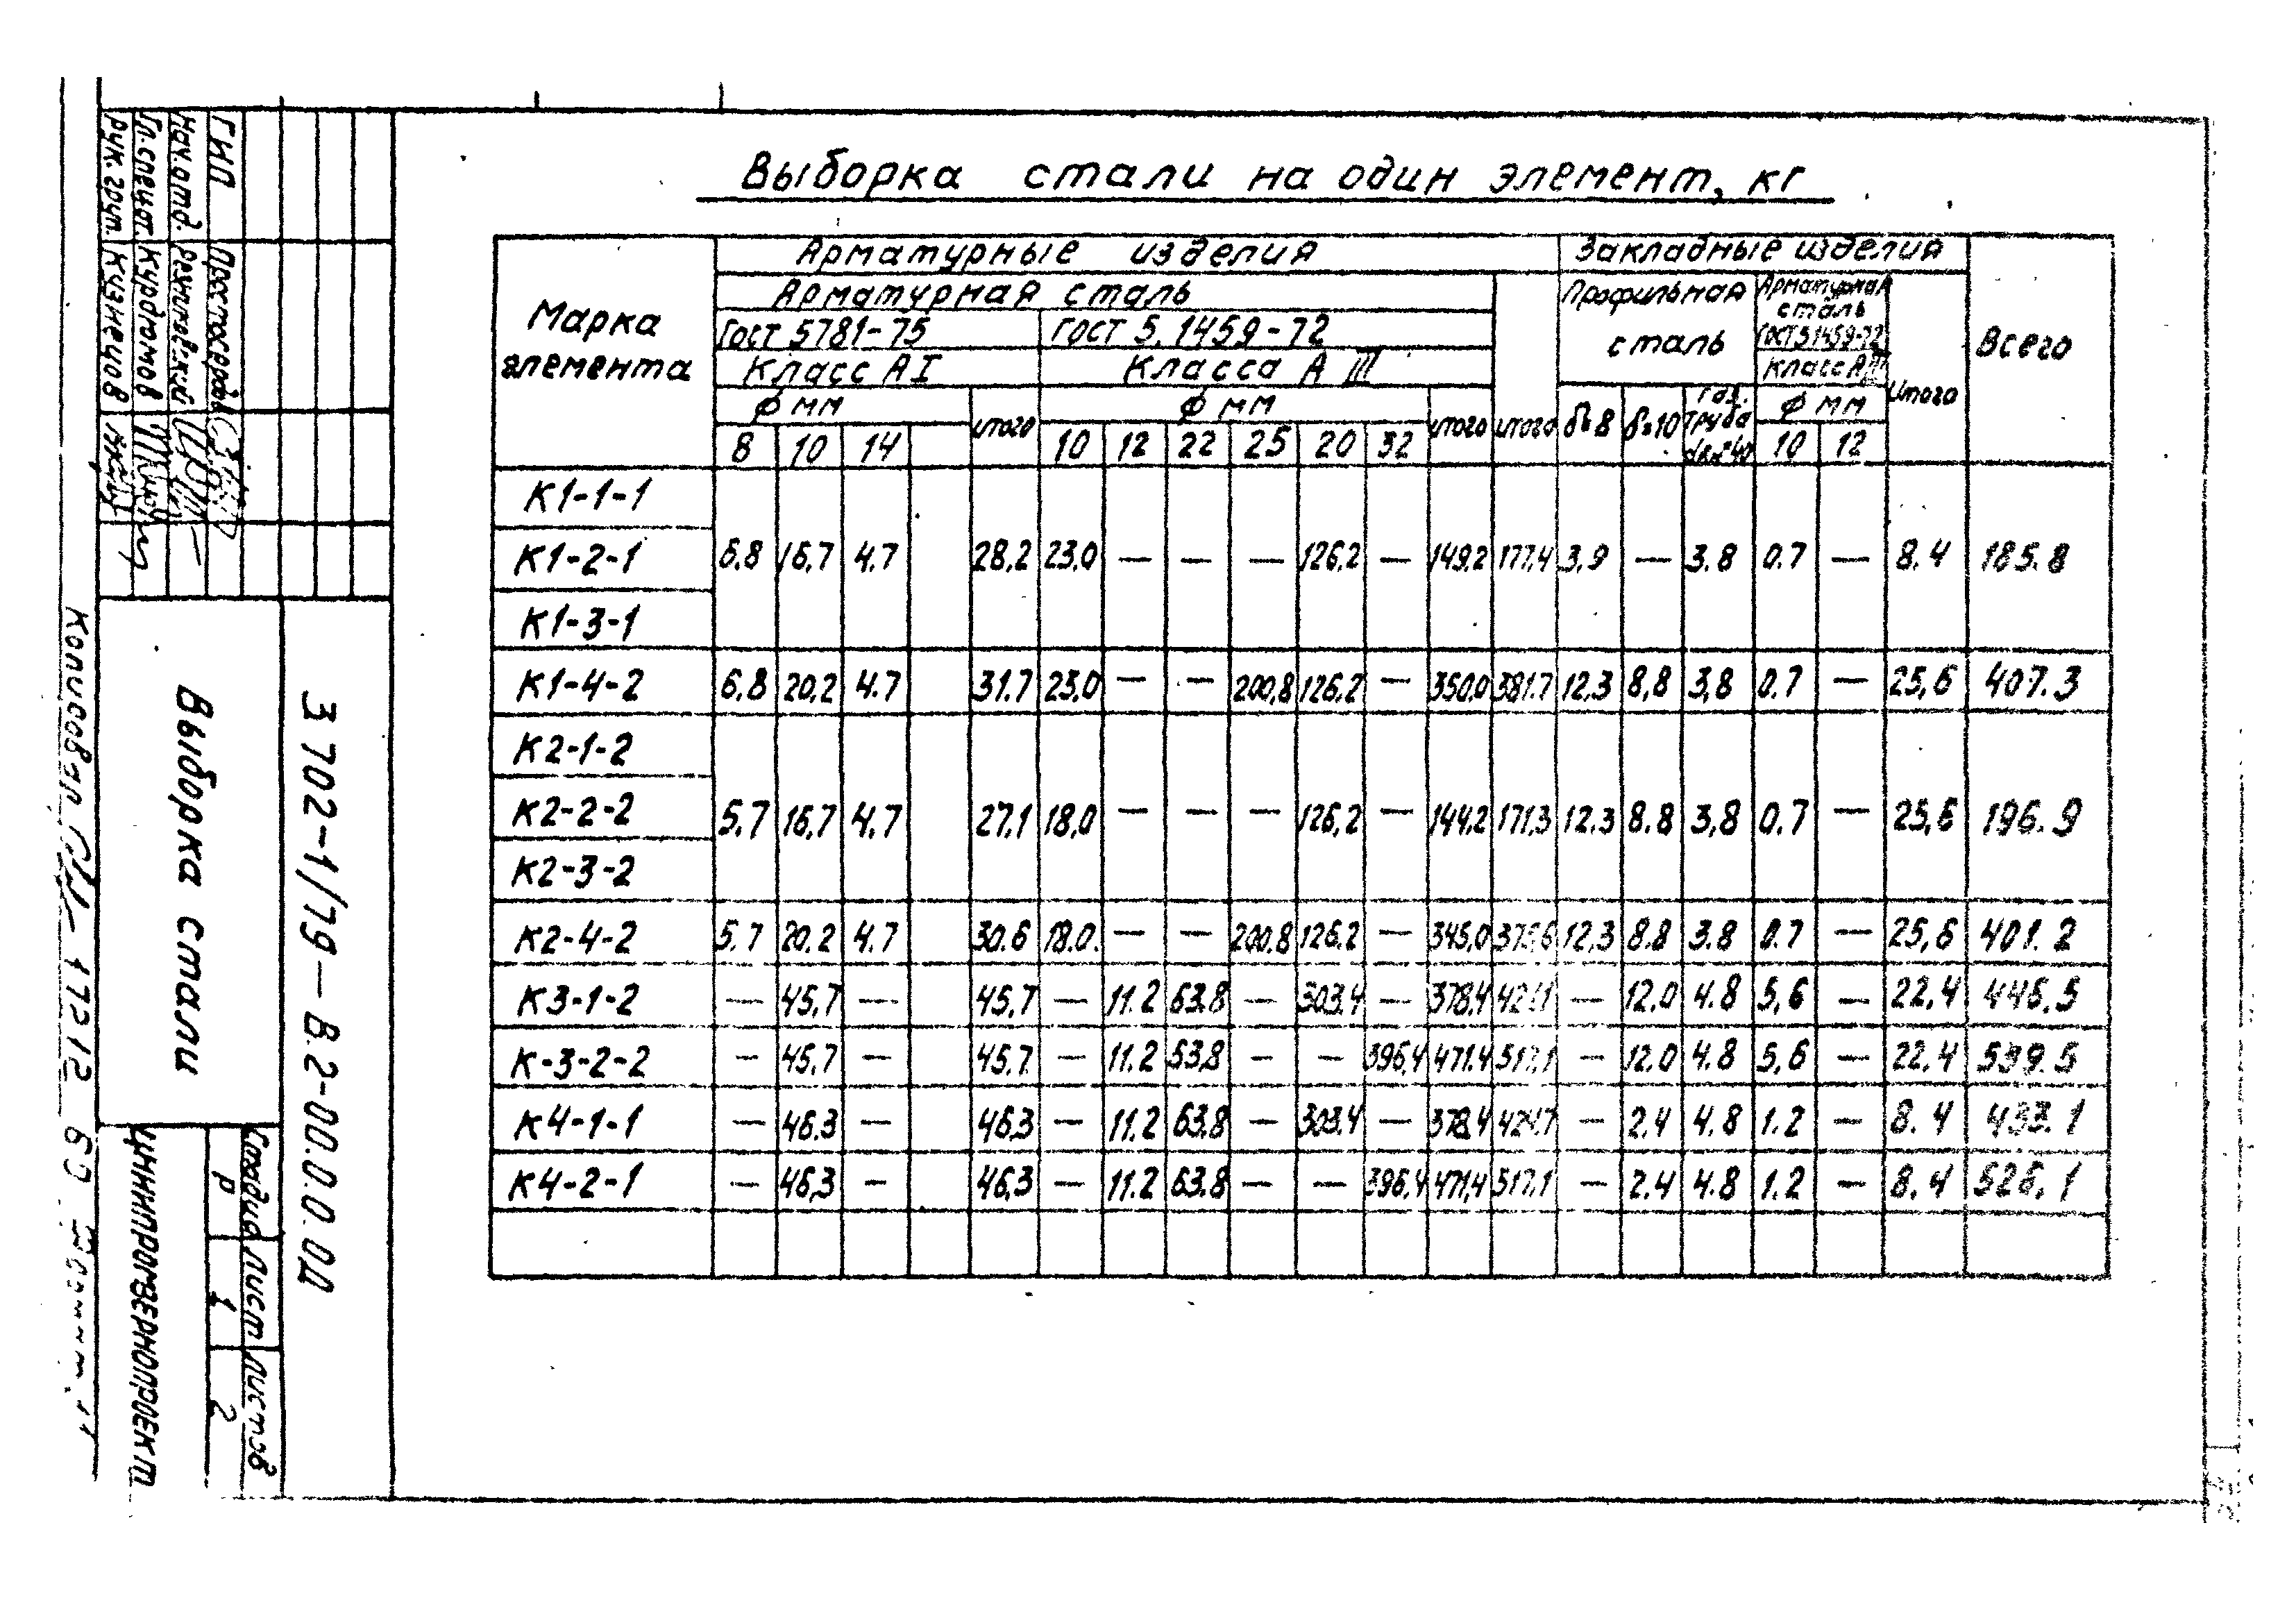 Выборка стали на один элемент, кг
Марка элемента
Арматурные изделия
Закладные изделия
Всего
Арматурная сталь
Гост 5781-75
гост 5.1459-72
Класс АI
Класса А III
Профильная сталь
Арматурная сталь
ГОСТ 5.1459-72
Класс АIII
ф мм
итого
ф мм
итого
итого
δ=8
δ=10
газ. труба
ф мм
Итого
8 10 14
10 12 22 25 20 32
10 12
К1-1-1
К1-2-1 6,8 16,7 4.7 28,2 23,0 — — — 126,2 — 149,2 177,4 3,9 — 3.8 0.7 — 8.4 185.8
К1-3-1
К1-4-2 6,8 20,2 4.7 31.7 23,0 — — 200,8 126,2 — 350,0 381.7 12,3 8,8 3,8 0.7 — 25,6 407.3
К2-1-2
К2-2-2 5.7 16,7 4.7 27,1 18,0 — — — 126,2 — 144,2 171,3 12.3 8.8 3,8 0.7 — 25,6 196.9
К2-3-2
К2-4-2 5.7 20,2 4.7 30.6 18.0. — — 200.8 126.2 — 345,0 375,6 12,3 8.8 3.8 0.7 — 25,6 401.2
К3-1-2 — 45,7 — 45,7 — 11.2 63.8 — 303,4 — 378,4 — 12.0 4.8 5,6 — 22,4 446.5
К-3-2-2 — 45.7 — 45.7 — 11.2 63,8 — — 396,4 471.4 517,1 — 12.0 4.8 5,6 — 22.4 539.5
К4-1-1 — 46.3 — 46,3 — 11.2 63.8 — 303.4 — 378,4 424.7 — 2.4 4.8 1.2 — 8.4 433.1
К4-2-1 — 46,3 — 46,3 — 11.2 63.8 — — 396.4 471,4 517.1 — 2.4 4.8 1.2 — 8.4 525.1
ГИП
Нач.отд.
Гл.специт. Курдюмов
Рук.груп. Кузнецов
3 702-1/79 — В.2-00.0.0.0Д
Выборка стали
Стадия Лист Листов
Р 1 2
ЦНИИПРОМЗЕРНОПРОЕКТ
Копировал
17212 69